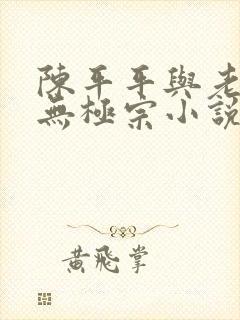 陳平平與老
無極宗小説
黃飛掌